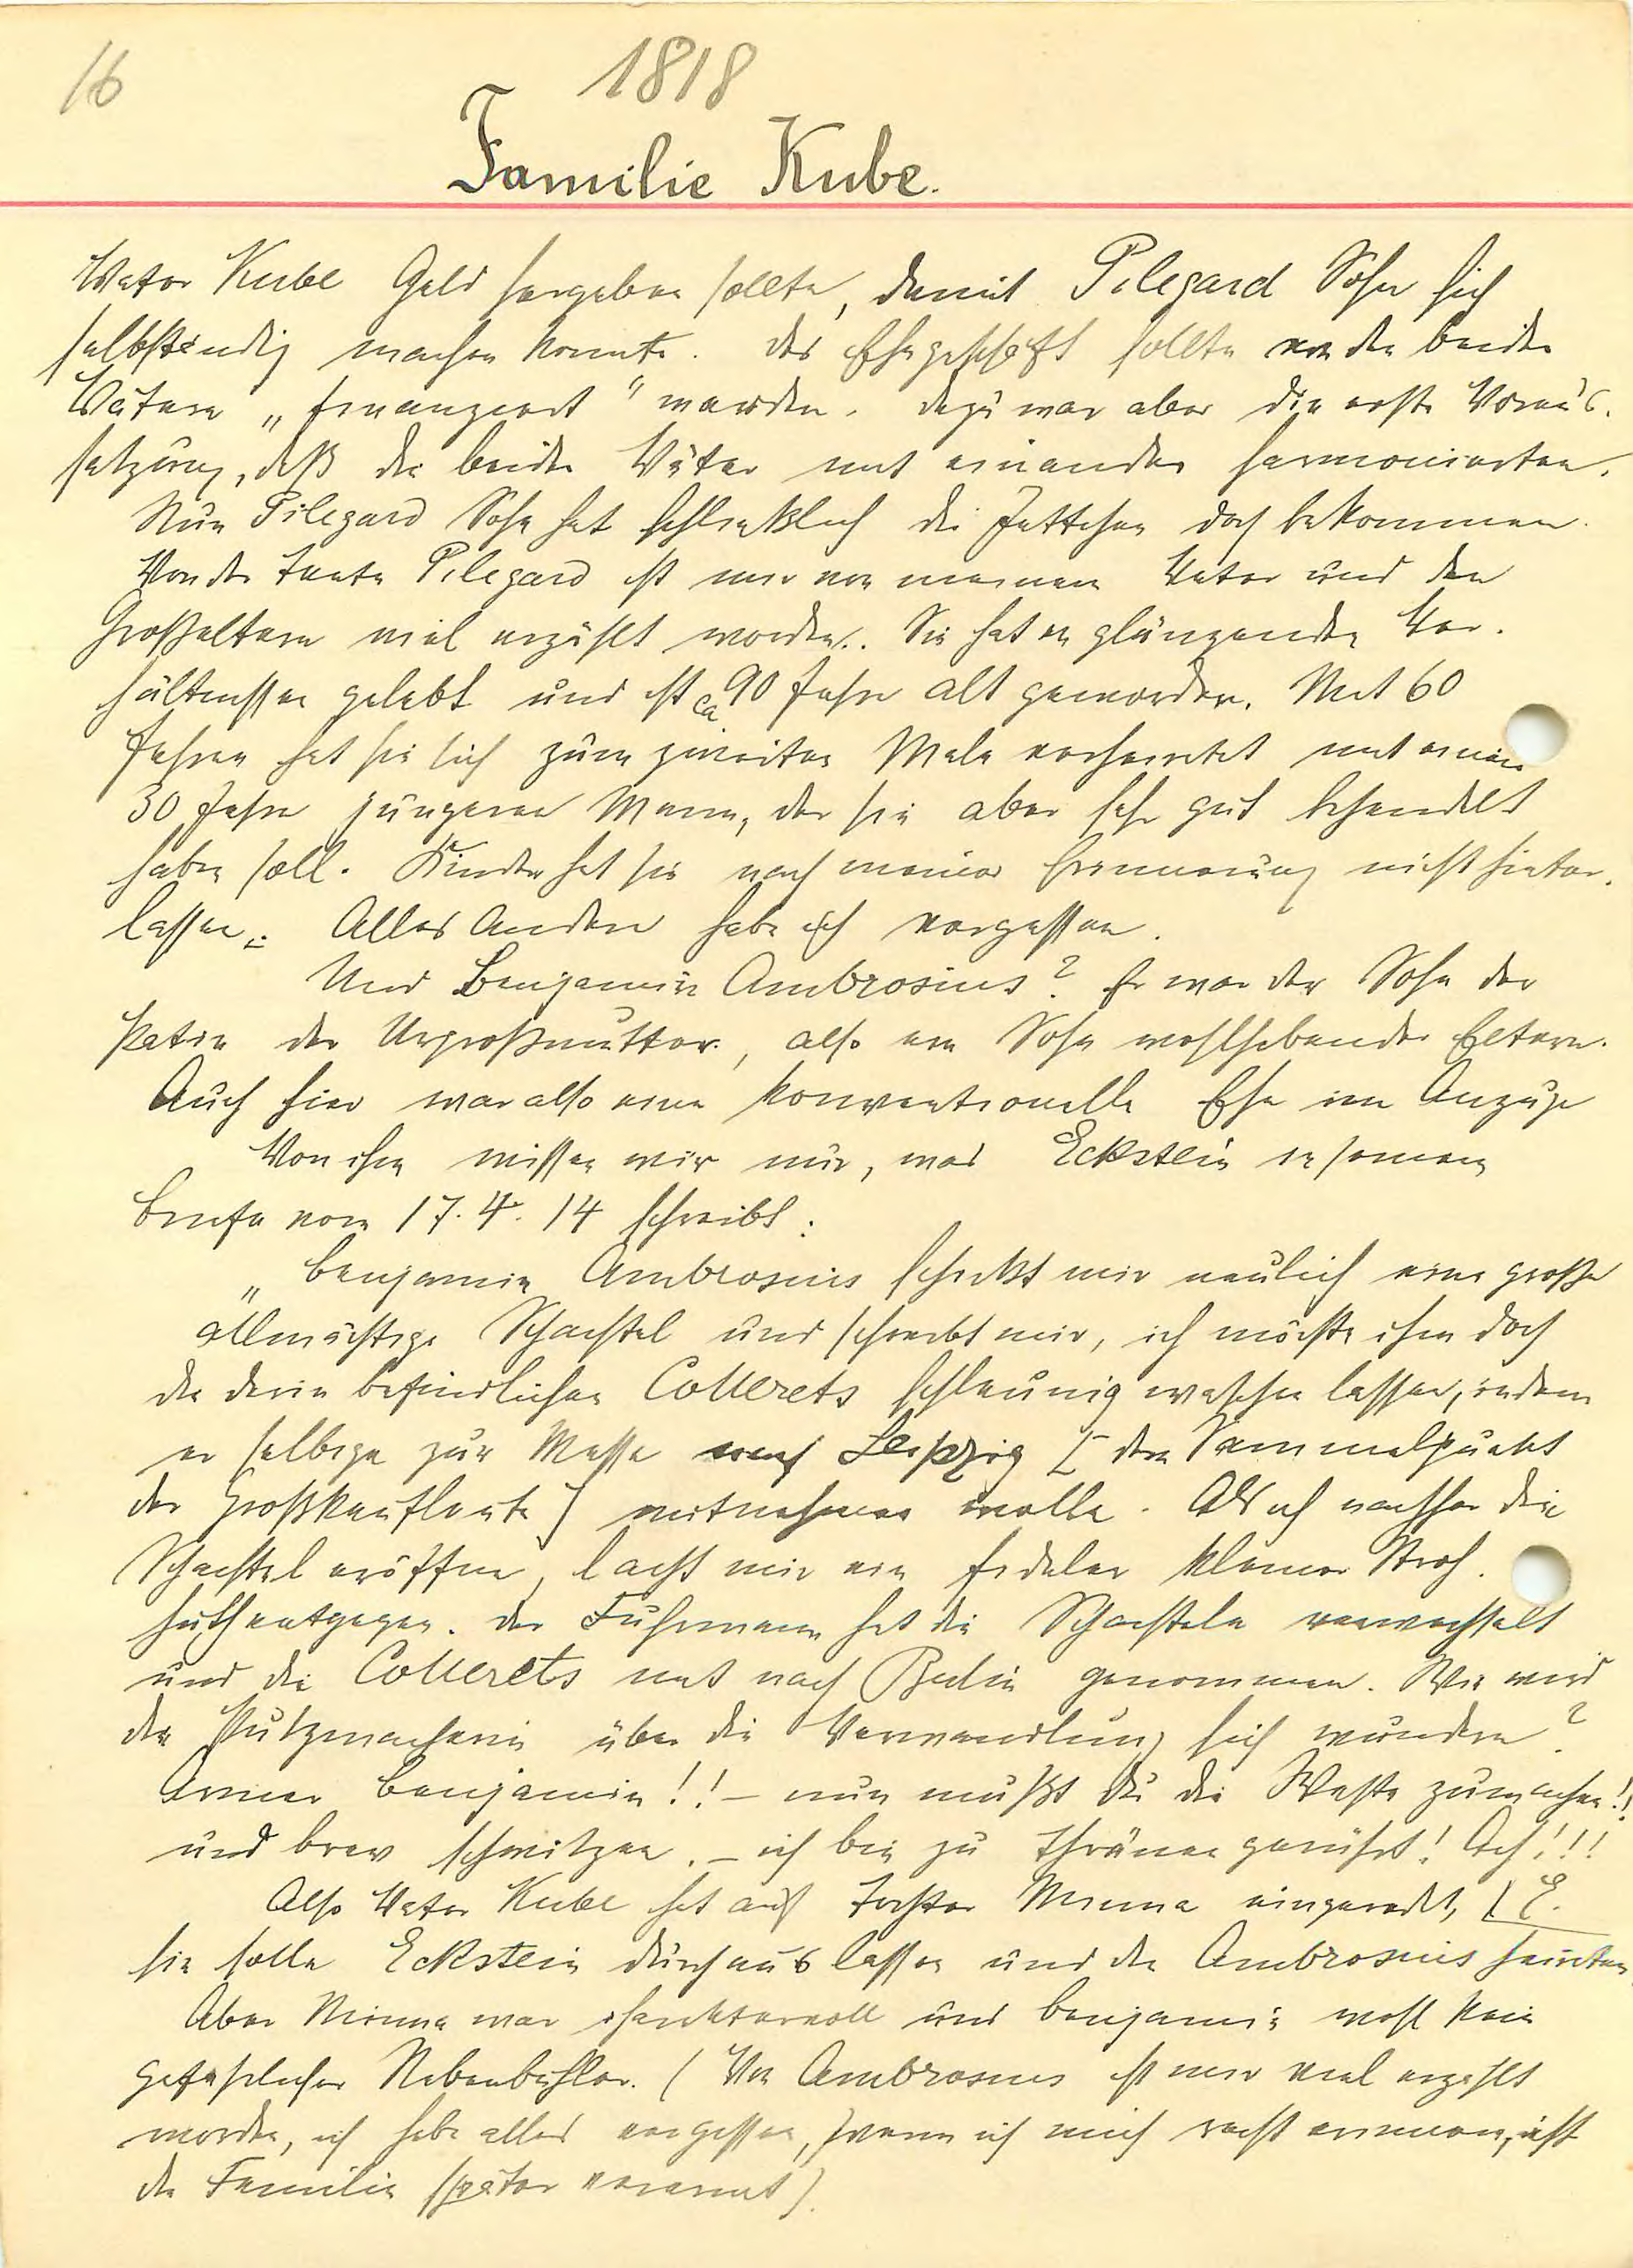 16
1818
Familie Kube.
Vater Kube Geld hergeben sollte, damit Pilegard Sohn sich
selbständig machen konnte. Das Ehegeschäft sollte von den beiden
Vätern „finanziert" werden. Dazu war aber die erste Voraus-
setzung, daß die beiden Väter mit einander harmonierten.
Nun Pilegard Sohn hat schließlich die Jettchen doch bekommen.
Von der Tante Pilegard ist mir von meinem Vater und den
Großeltern viel erzählt worden. Sie hat in glänzenden Ver-
hältnissen gelebt und ist ca 90 Jahre alt geworden. Mit 60
Jahren hat sie sich zum zweiten Male verheiratet mit einem
30 Jahre jüngeren Mann, der sie aber sehr gut behandelt
haben soll. Kinder hat sie nach meiner Erinnerung nicht hinter-
lassen. Alles Andere habe ich vergessen.
Und Benjamin Ambrosius? Er war der Sohn der
Patin der Urgroßmutter, also ein Sohn wohlhabender Eltern.
Auch hier war also eine konventionelle Ehe im Anzuge
Von ihm wissen wir nur, was Eckstein in seinem
Briefe vom 17. 4. 14 schreibt:
„Benjamin Ambrosius schickt mir neulich eine große
allmächtige Schachtel und schreibt mir, ich möchte ihm doch
die darin befindlichen Collerets schleunig waschen lassen, indem
er selbige zur Messe nach Leipzig [den Sammelpunkt
der Großkaufleute] mitnehmen wolle. Als ich nachher die
Schachtel eröffne, lacht mir ein fideler kleiner Stroh-
huth entgegen. Der Fuhrmann hat die Schachteln verwechselt
und die Collerets mit nach Berlin genommen. Wie wird
die Putzmacherin über die Verwandlung sich wundern?
Armer Benjamin!! – nun mußt Du die Weste zumachen!!
und brav schwitzen. – ich bin zu Thränen gerührt! Ach!!!
Also Vater Kube hat auf Tochter Minna eingeredet, E.
sie solle Eckstein durchaus lassen und den Ambrosius heiraten
Aber Minna war charaktervoll und Benjamin wohl kein
gefährlicher Nebenbuhler. (Von Ambrosius ist mir viel erzählt
worden, ich habe alles vergessen, wenn ich mich recht erinnere, ist
die Familie später verarmt).